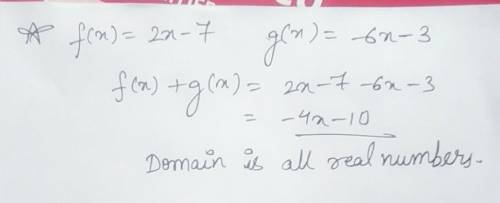 ☆ f(x) = 2x-7 g(x) = -6x-3
f(x) + g(x) = 2x-7 -6x-3
= -4x-10
Domain is all real numbers.